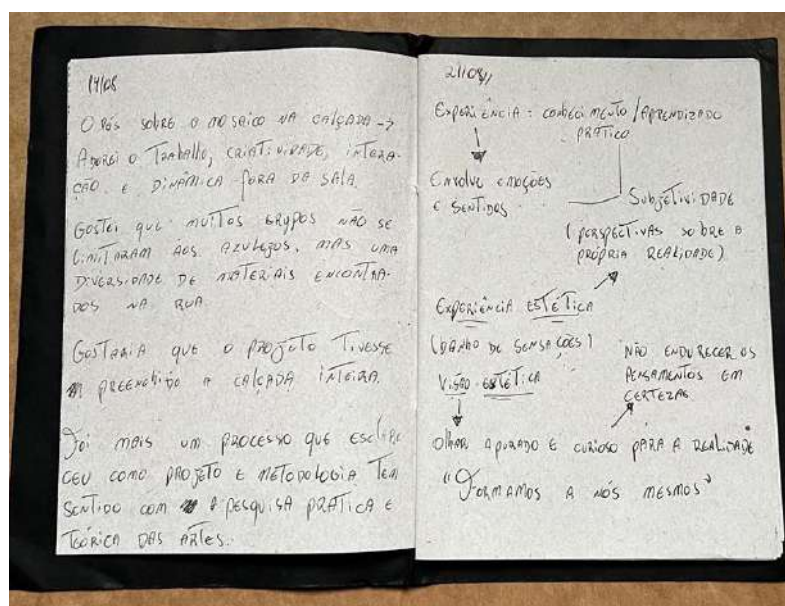 14/08
O Pós sobre o mosaico na calçada →
Adorei o Trabalho, criatividade, intera-
ção e dinâmica fora da sala.
Gostei que muitos grupos não se
limitaram aos azulejos, mas uma
diversidade de materiais encontra-
dos na rua.
Gostaria que o projeto tivesse
preenchido a calçada inteira.
Foi mais um processo que esclare
ceu como projeto e metodologia tem
sentido com a pesquisa prática e
teórica das artes.
21/08
Experiência = conhecimento / Aprendizado
prático
Envolve emoções
e sentidos
Subjetividade
(perspectivas sobre a
própria realidade)
Experiência estética
(banho de sensações)
Visão estética
Não endurecer os
pensamentos em
certezas
Olhar apurado e curioso para a realidade
"Formamos a nós mesmos"